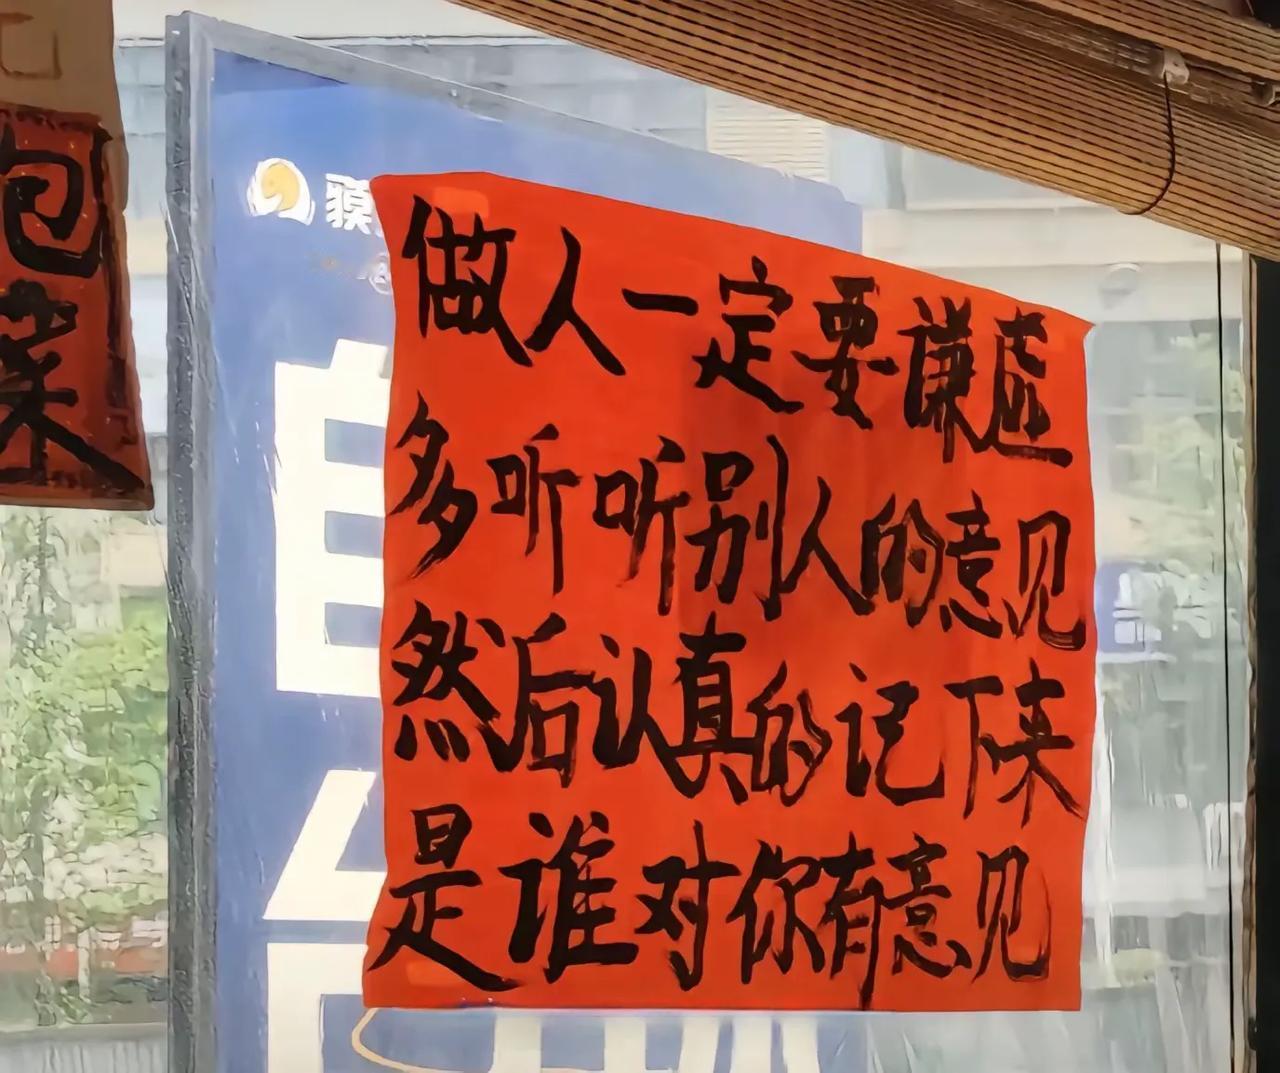 包
菜
貘
做人一定要谦虚
多听听别人的意见
然后认真的记下来
是谁对你有意见